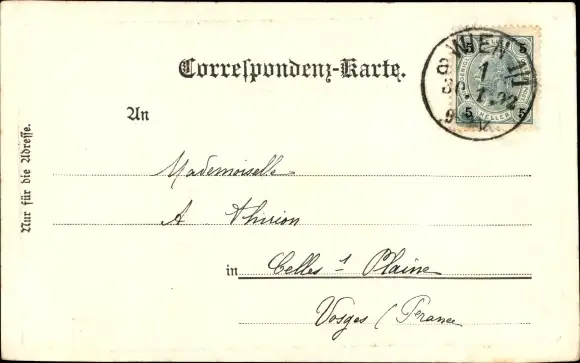 Correspondenz-Karte.
WIEN
1
5 5
HELLER
5 5
An
Nur für die Adresse.
Mademoiselle
A Thirion
in Celles s/ Plaine
Vosges (France